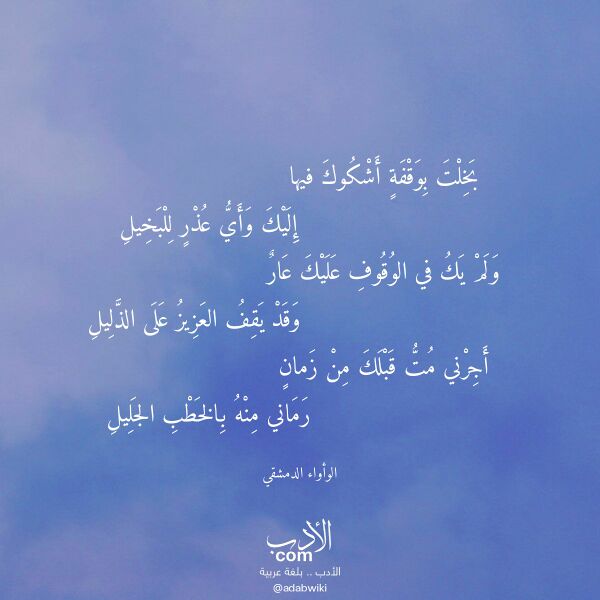 بَخِلْتَ بِوَقْفَةٍ أَشْكُوكَ فيها
إِلَيْكَ وَأَيُّ عُذْرٍ لِلْبَخِيلِ
وَلَمْ يَكُ في الوُقُوفِ عَلَيْكَ عَارٌ
وَقَدْ يَقِفُ العَزِيزُ عَلَى الذَّلِيلِ
أَجِرْني مُتُّ قَبْلَكَ مِنْ زَمانٍ
رَمَاني مِنْهُ بِالخَطْبِ الجَلِيلِ
الوأواء الدمشقي
الأدب
com
الأدب .. بلغة عربية
@adabwiki